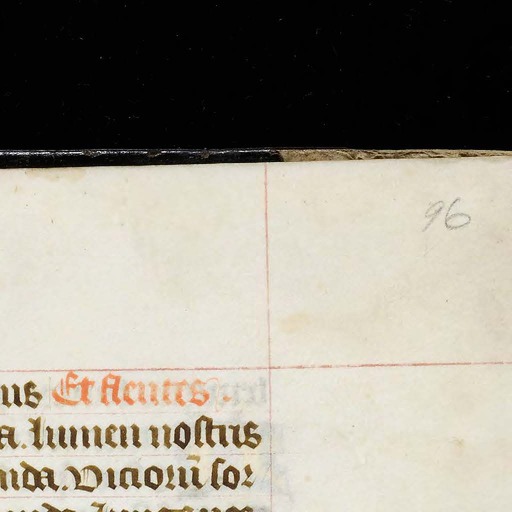 96
us Et flentes.
a. lumen nostris
nda. Viciorū sor